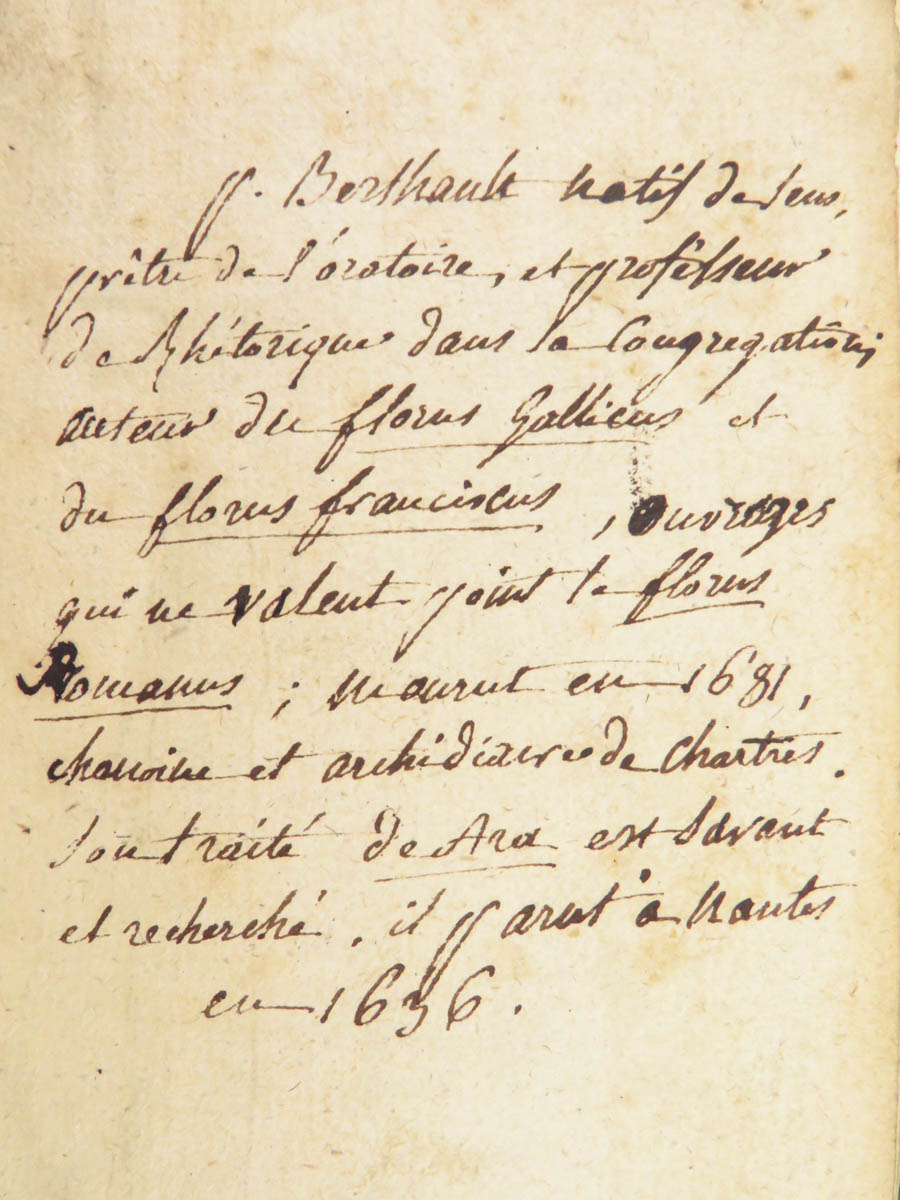 p. Berthault natif de Sens,
prêtre de l'oratoire, et professeur
de Rhétorique dans la Congregation,
auteur du florus Gallicus et
du florus franciscus, ouvrages
qui ne valent point le florus
Romanus ; mourut en 1681,
chanoine et archidiacre de Chartres.
Son traité de Ara est savant
et recherché. il parut à Nantes
en 1636.